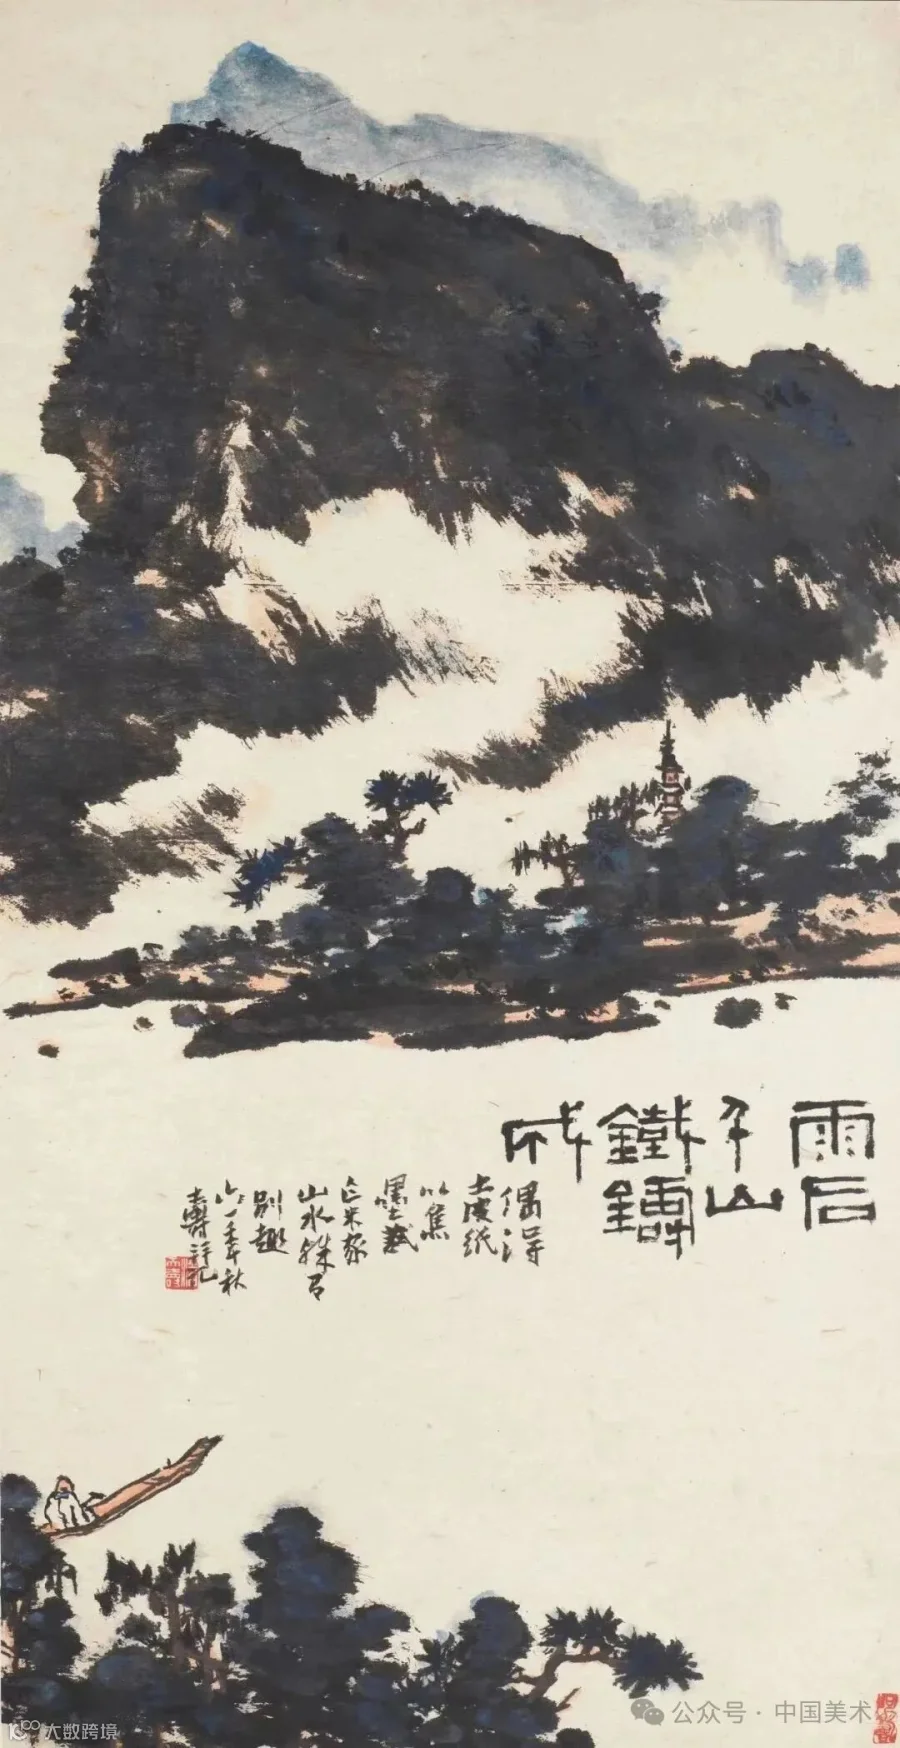 雨后
千山
鐵鑄
成
偶得
土皮紙
以焦
墨戲
米家
山水殊有
别趣
六一年秋
壽
公众号 · 中国美术
大数跨境